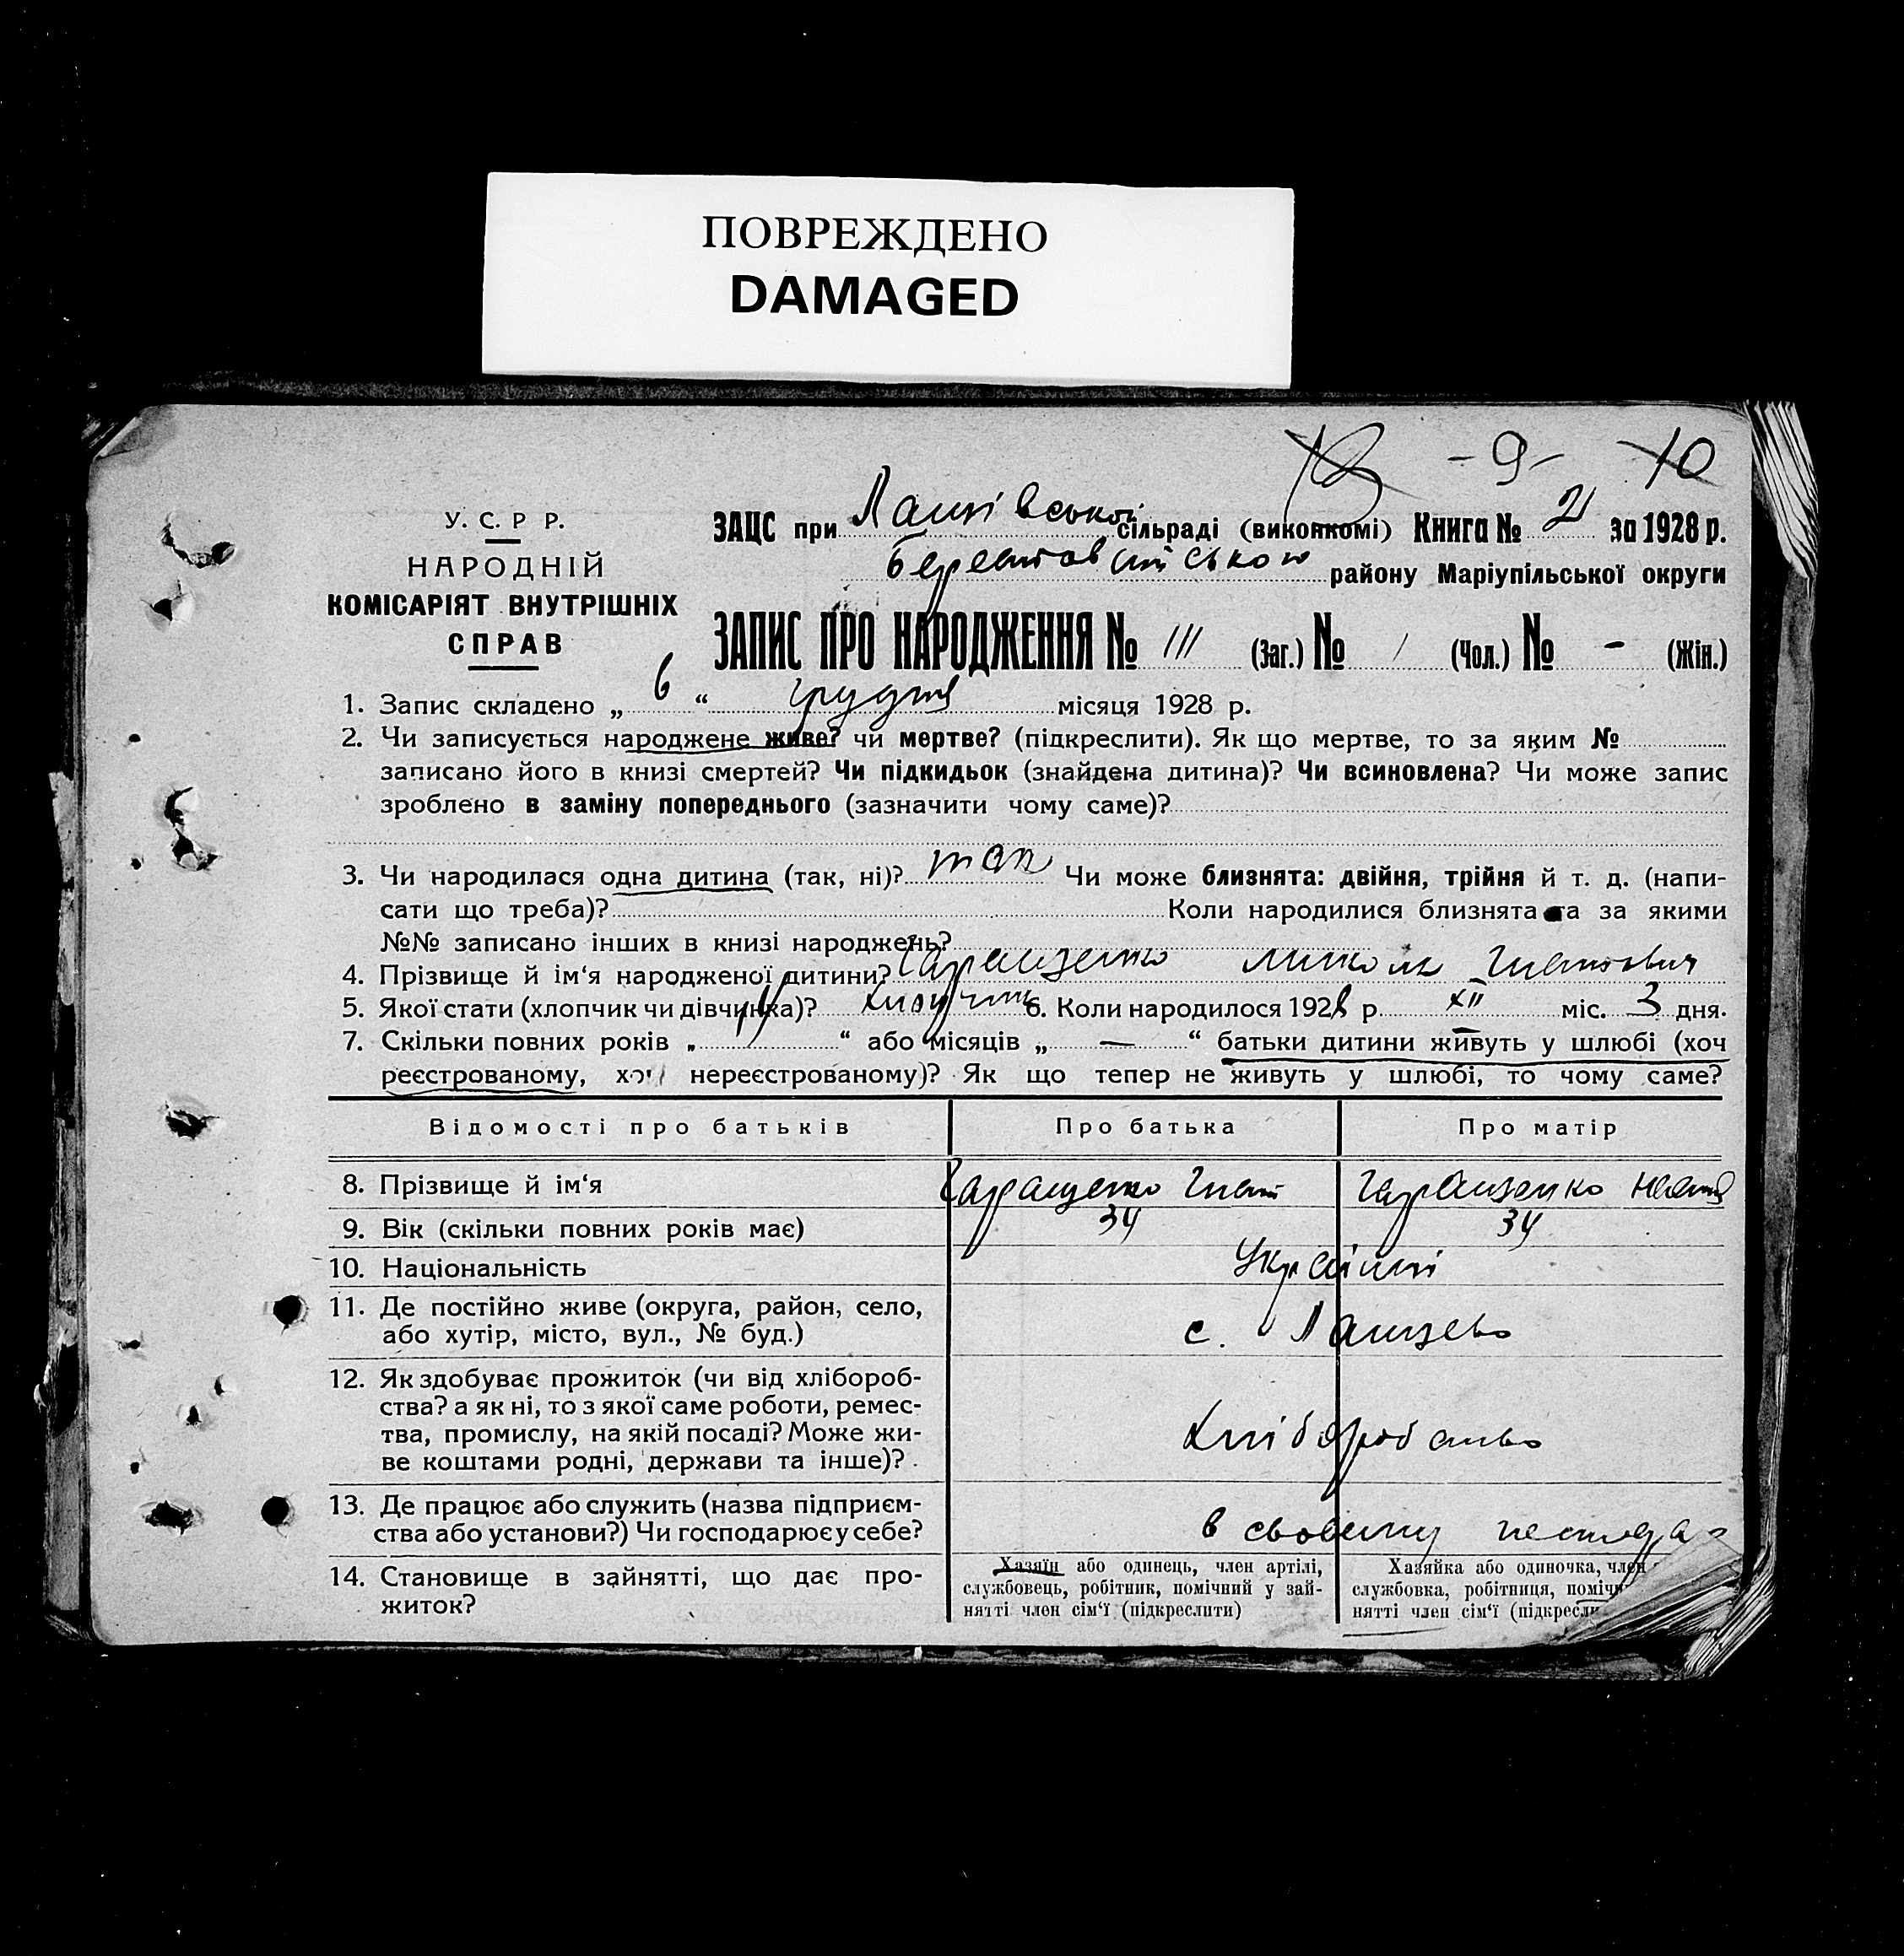 ПОВРЕЖДЕНО
DAMAGED
-9- 10
У. С. Р Р.
НАРОДНІЙ
КОМІСАРІЯТ ВНУТРІШНІХ
СПРАВ
ЗАЦС при сільраді (виконкомі) Книга № 21 за 1928 р.
району Маріупільської округи
ЗАПИС ПРО НАРОДЖЕННЯ № 111 (Заг.) № 1 (Чол.) № - (Жін.)
1. Запис складено „ 6 “ грудня місяця 1928 р.
2. Чи записується народжене живе? чи мертве? (підкреслити). Як що мертве, то за яким №
записано його в книзі смертей? Чи підкидьок (знайдена дитина)? Чи всиновлена? Чи може запис
зроблено в заміну попереднього (зазначити чому саме)?
3. Чи народилася одна дитина (так, ні)? так Чи може близнята: двійня, трійня й т. д. (напи-
сати що треба)? Коли народилися близнята та за якими
№№ записано інших в книзі народжень?
4. Прізвище й ім‘я народженої дитини? Гаращенко
5. Якої стати (хлопчик чи дівчинка)? хлопчик 6. Коли народилося 1928 р. XII міс. 3 дня.
7. Скільки повних років „ “ або місяців „ — “ батьки дитини живуть у шлюбі (хоч
реєстрованому, хоч нереєстрованому)? Як що тепер не живуть у шлюбі, то чому саме?
Відомості про батьків Про батька Про матір
8. Прізвище й ім‘я Гаращенко Гнат Гаращенко
9. Вік (скільки повних років має) 34 34
10. Національність Українці
11. Де постійно живе (округа, район, село,
або хутір, місто, вул., № буд.) с.
12. Як здобуває прожиток (чи від хлібороб-
ства? а як ні, то з якої саме роботи, ремес-
тва, промислу, на якій посаді? Може жи-
ве коштами родні, держави та інше)? Хліборобство
13. Де працює або служить (назва підприєм-
ства або установи?) Чи господарює у себе? в своєму
14. Становище в зайнятті, що дає про-
житок?
Хазяїн або одинець, член артілі,
службовець, робітник, помічний у зай-
нятті член сім‘ї (підкреслити)
Хазяйка або одиночка, член
службовка, робітниця, поміч
нятті член сім‘ї (підкресли